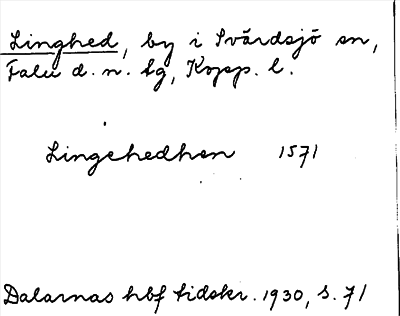 Linghed, by i Svärdsjö sn,
Falu d. n. tg, Kopp. l.
Lingehedhen 1571
Dalarnas hbf tidskr. 1930, s. 71